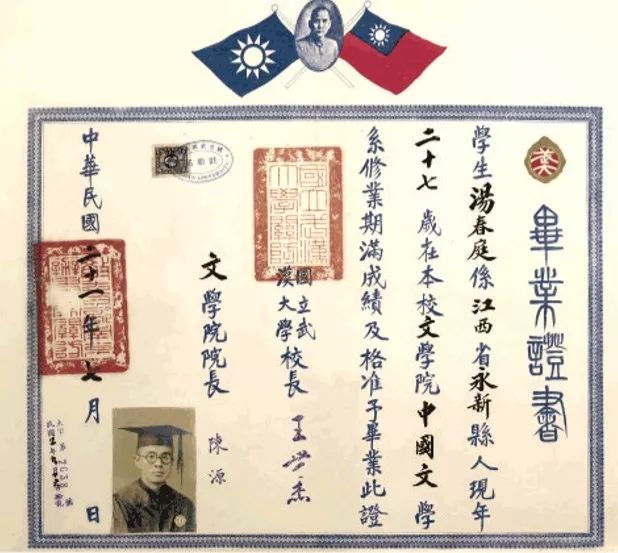 畢業證書
學生湯春庭係江西省永新縣人現年
二十七歲在本校文學院中國文學
系修業期滿成績及格准予畢業此證
國立武漢大學校長 王世杰
國立武漢大學關防
文學院院長 陳源
中華民國二十一年七月 日